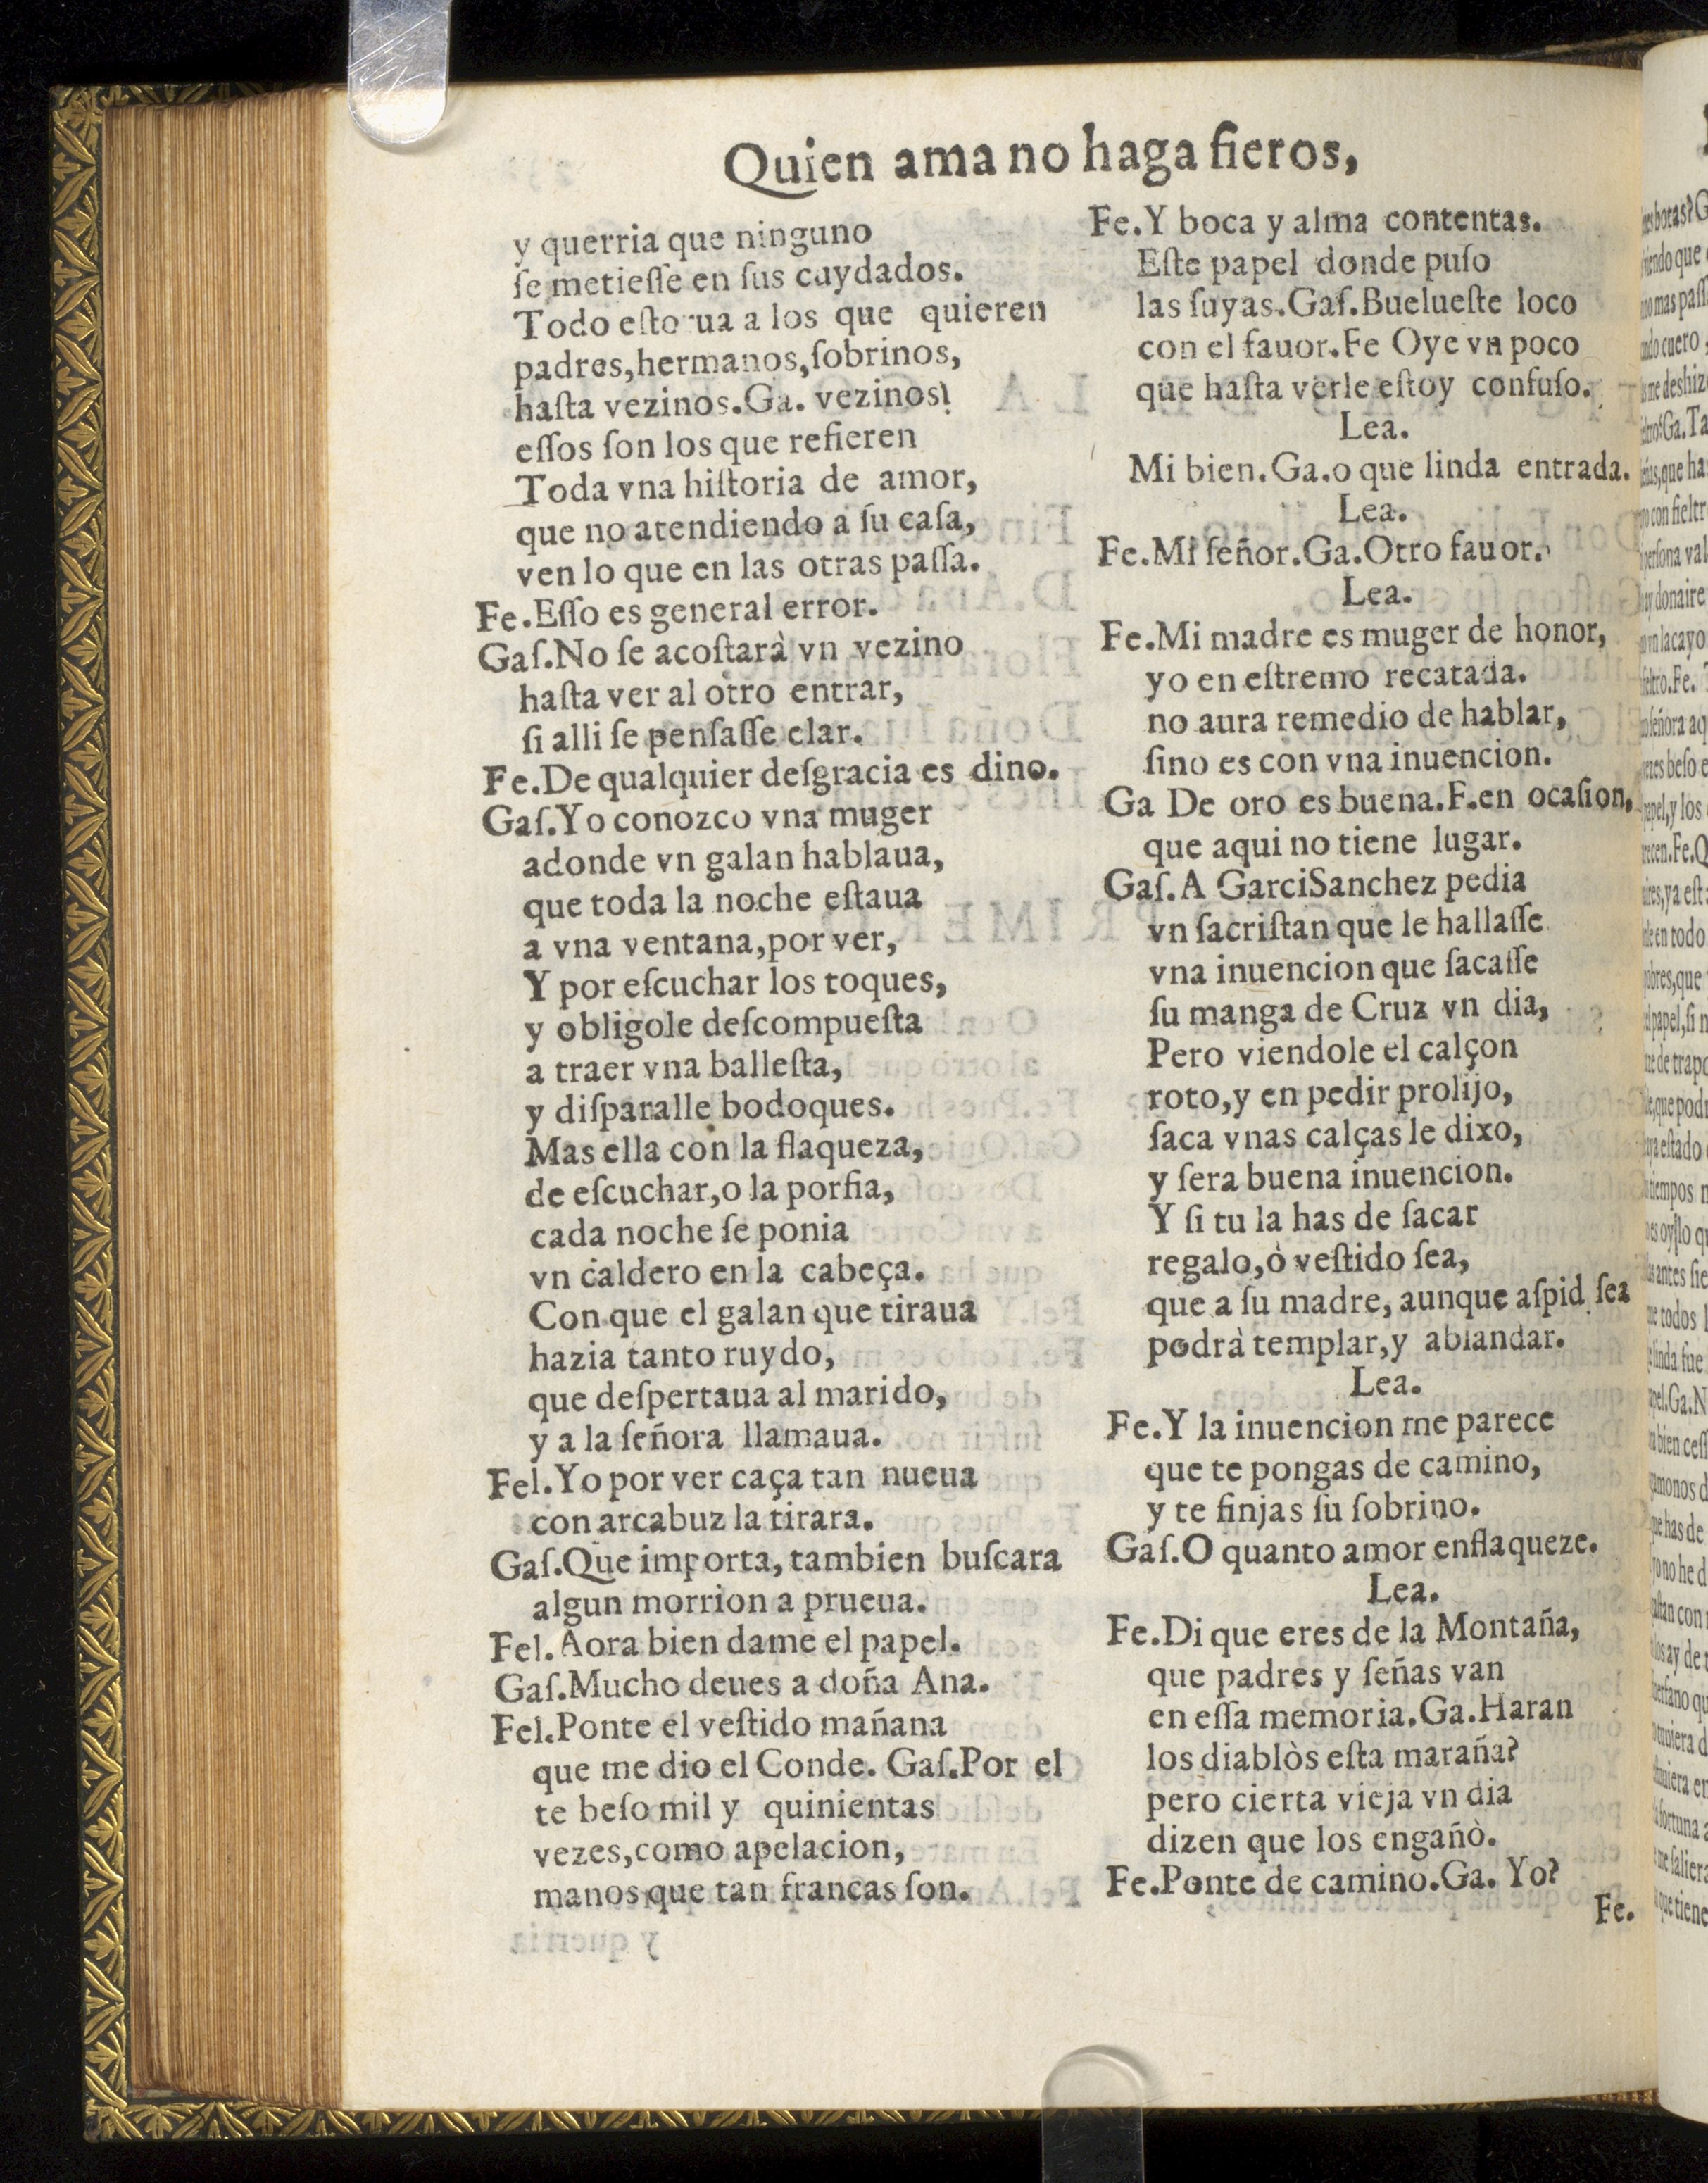 Quien ama no haga fieros,
y querria que ninguno
ſe metieſſe en ſus cuydados.
Todo eſtorua a los que quieren
padres, hermanos, ſobrinos,
haſta vezinos. Ga. vezinos!
eſſos ſon los que refieren
Toda vna hiſtoria de amor,
que no atendiendo a ſu caſa,
ven lo que en las otras paſſa.
Fe. Eſſo es general error.
Gaſ. No ſe acoſtarà vn vezino
haſta ver al otro entrar,
ſi alli ſe penſaſſe elar.
Fe. De qualquier deſgracia es dino.
Gaſ. Yo conozco vna muger
adonde vn galan hablaua,
que toda la noche eſtaua
a vna ventana, por ver,
Y por eſcuchar los toques,
y obligole deſcompueſta
a traer vna balleſta,
y diſparalle bodoques.
Mas ella con la flaqueza,
de eſcuchar, o la porfia,
cada noche ſe ponia
vn caldero en la cabeça.
Con que el galan que tiraua
hazia tanto ruydo,
que deſpertaua al marido,
y a la ſeñora llamaua.
Fel. Yo por ver caça tan nueua
con arcabuz la tirara.
Gaſ. Que importa, tambien buſcara
algun morrion a prueua.
Fel. Aora bien dame el papel.
Gaſ. Mucho deues a doña Ana.
Fel. Ponte el veſtido mañana
que me dio el Conde. Gaſ. Por el
te beſo mil y quinientas
vezes, como apelacion,
manos que tan francas ſon.
Fe. Y boca y alma contentas.
Eſte papel donde puſo
las ſuyas. Gaſ. Buelueſte loco
con el fauor. Fe Oye vn poco
que haſta verle eſtoy confuſo.
Lea.
Mi bien. Ga. o que linda entrada.
Lea.
Fe. Mi ſeñor. Ga. Otro fauor.
Lea.
Fe. Mi madre es muger de honor,
yo en eſtremo recatada.
no aura remedio de hablar,
ſino es con vna inuencion.
Ga De oro es buena. F. en ocaſion,
que aqui no tiene lugar.
Gaſ. A GarciSanchez pedia
vn ſacriſtan que le hallaſſe
vna inuencion que ſacaſſe
ſu manga de Cruz vn dia,
Pero viendole el calçon
roto, y en pedir prolijo,
ſaca vnas calças le dixo,
y ſera buena inuencion.
Y ſi tu la has de ſacar
regalo, ò veſtido ſea,
que a ſu madre, aunque aſpid ſea
podrà templar, y ablandar.
Lea.
Fe. Y la inuencion me parece
que te pongas de camino,
y te finjas ſu ſobrino.
Gaſ. O quanto amor enflaqueze.
Lea.
Fe. Di que eres de la Montaña,
que padres y ſeñas van
en eſſa memoria. Ga. Haran
los diablòs eſta maraña?
pero cierta vieja vn dia
dizen que los engañò.
Fe. Ponte de camino. Ga. Yo?
Fe.